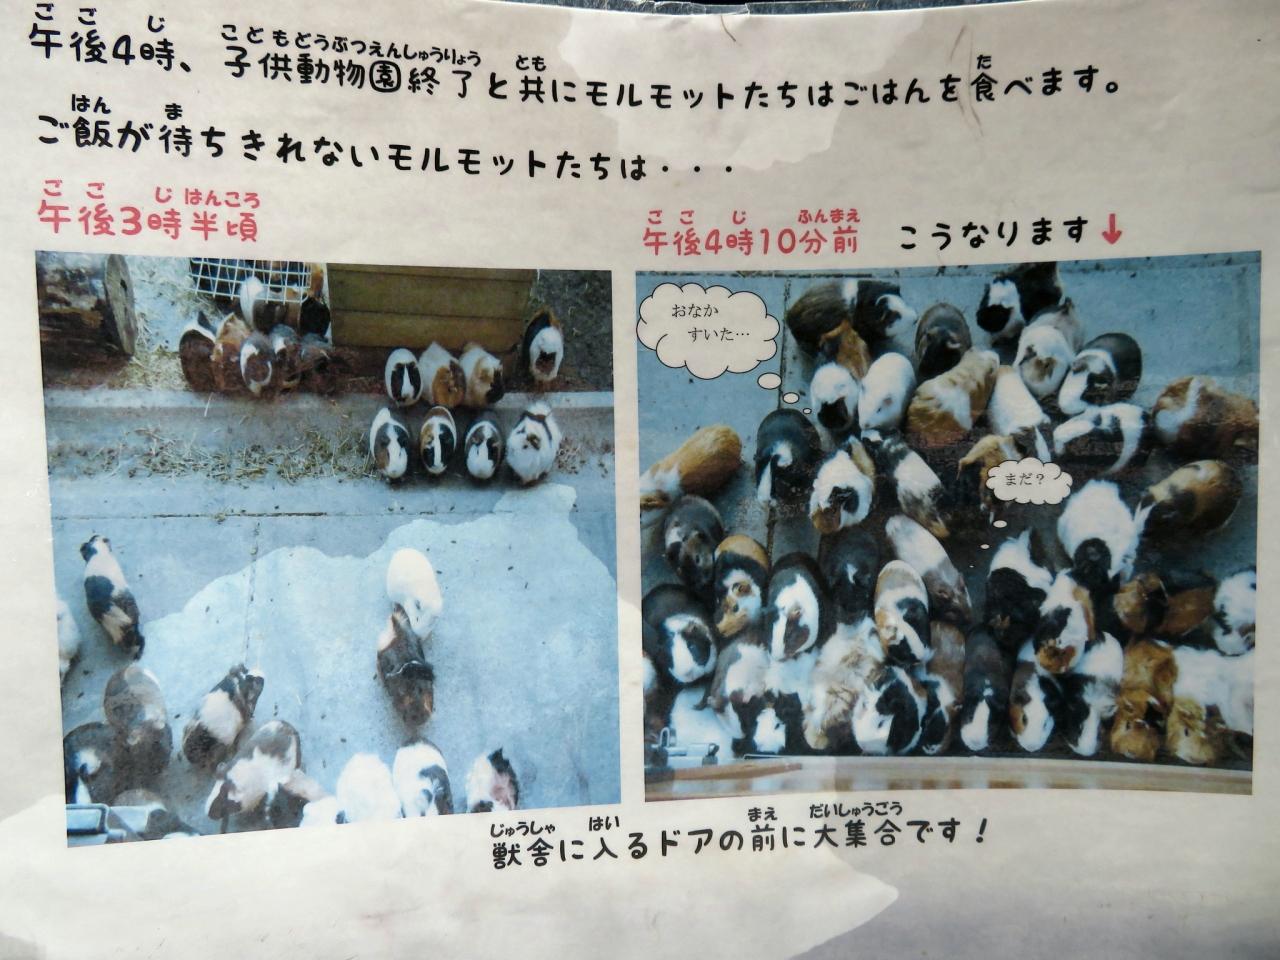 午後4時、子供動物園終了と共にモルモットたちはごはんを食べます。
ご飯が待ちきれないモルモットたちは・・・
午後3時半頃
午後4時10分前 こうなります↓
おなか
すいた…
まだ？
獣舎に入るドアの前に大集合です！